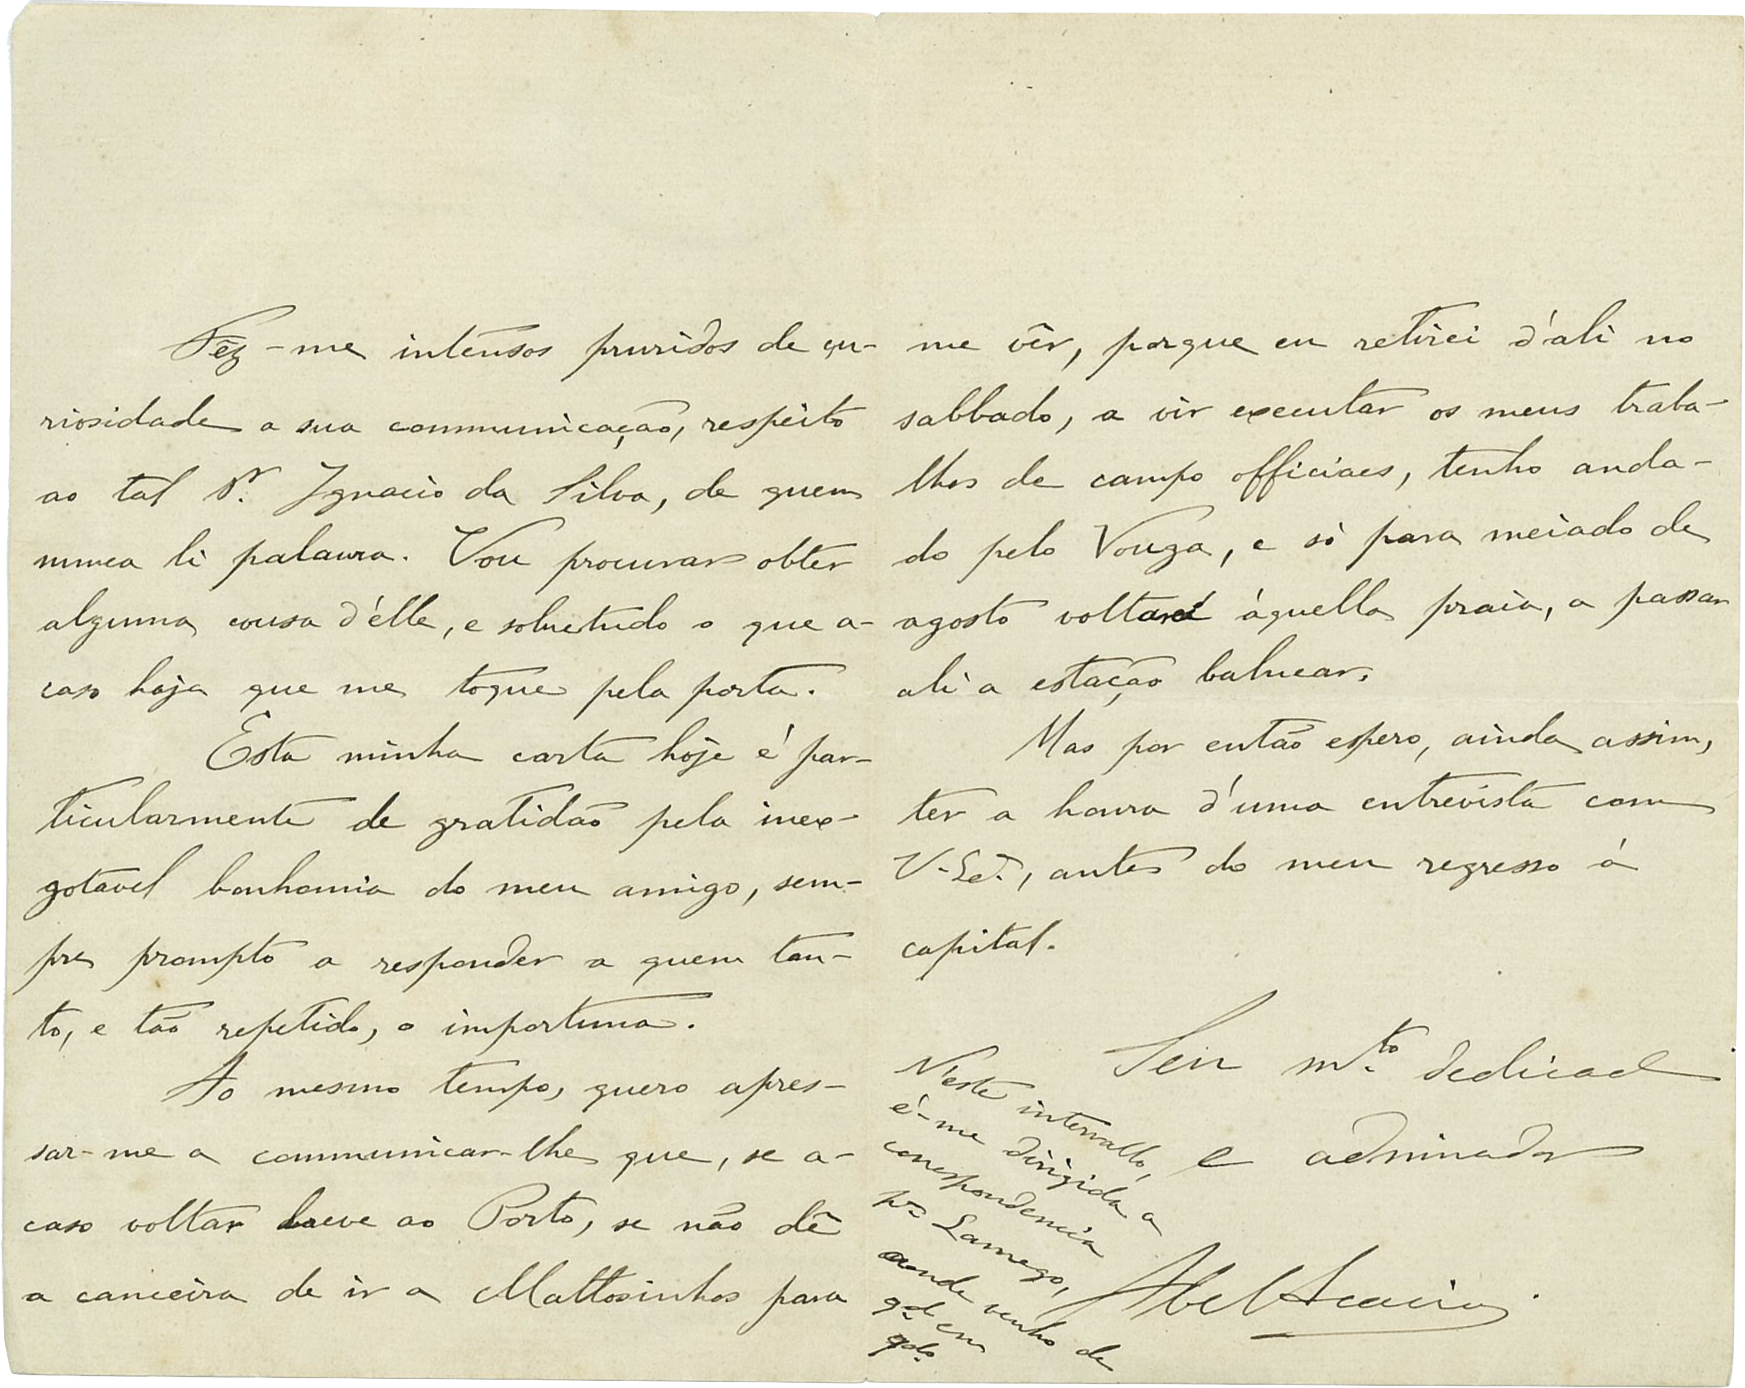 Fêz-me intensos pruridos de cu-
riosidade a sua communicação, respeito
ao tal Sr. Ignacio da Silva, de quem
nunca li palavra. Vou procurar obter
alguma cousa d'élle, e sobretudo o que a-
caso haja que me toque pela porta.
Esta minha carta hoje é par-
ticularmente de gratidão pela inex-
gotavel bonhomia do meu amigo, sem-
pre prompto a responder a quem tan-
to, e tão repetido, o importuna.
Ao mesmo tempo, quero apres-
sar-me a communicar-lhe que, se a-
caso voltar breve ao Porto, se não dê
a canceira de ir a Mattosinhos para
me vêr, porque eu retirei d'ali no
sabbado, a vir executar os meus traba-
lhos de campo officiaes, tenho anda-
do pelo Vouga, e só para meiado de
agosto voltarei áquella praia, a passar
ali a estação balnear.
Mas por então espero, ainda assim,
ter a honra d'uma entrevista com
V. Exª., antes do meu regresso á
capital.
Seu mto. dedicado
e admirador
Abel Acacio
N'este intervallo,
é-me dirigida a
correspondencia
pª Lamego,
aonde venho de
qdo em
qdo.